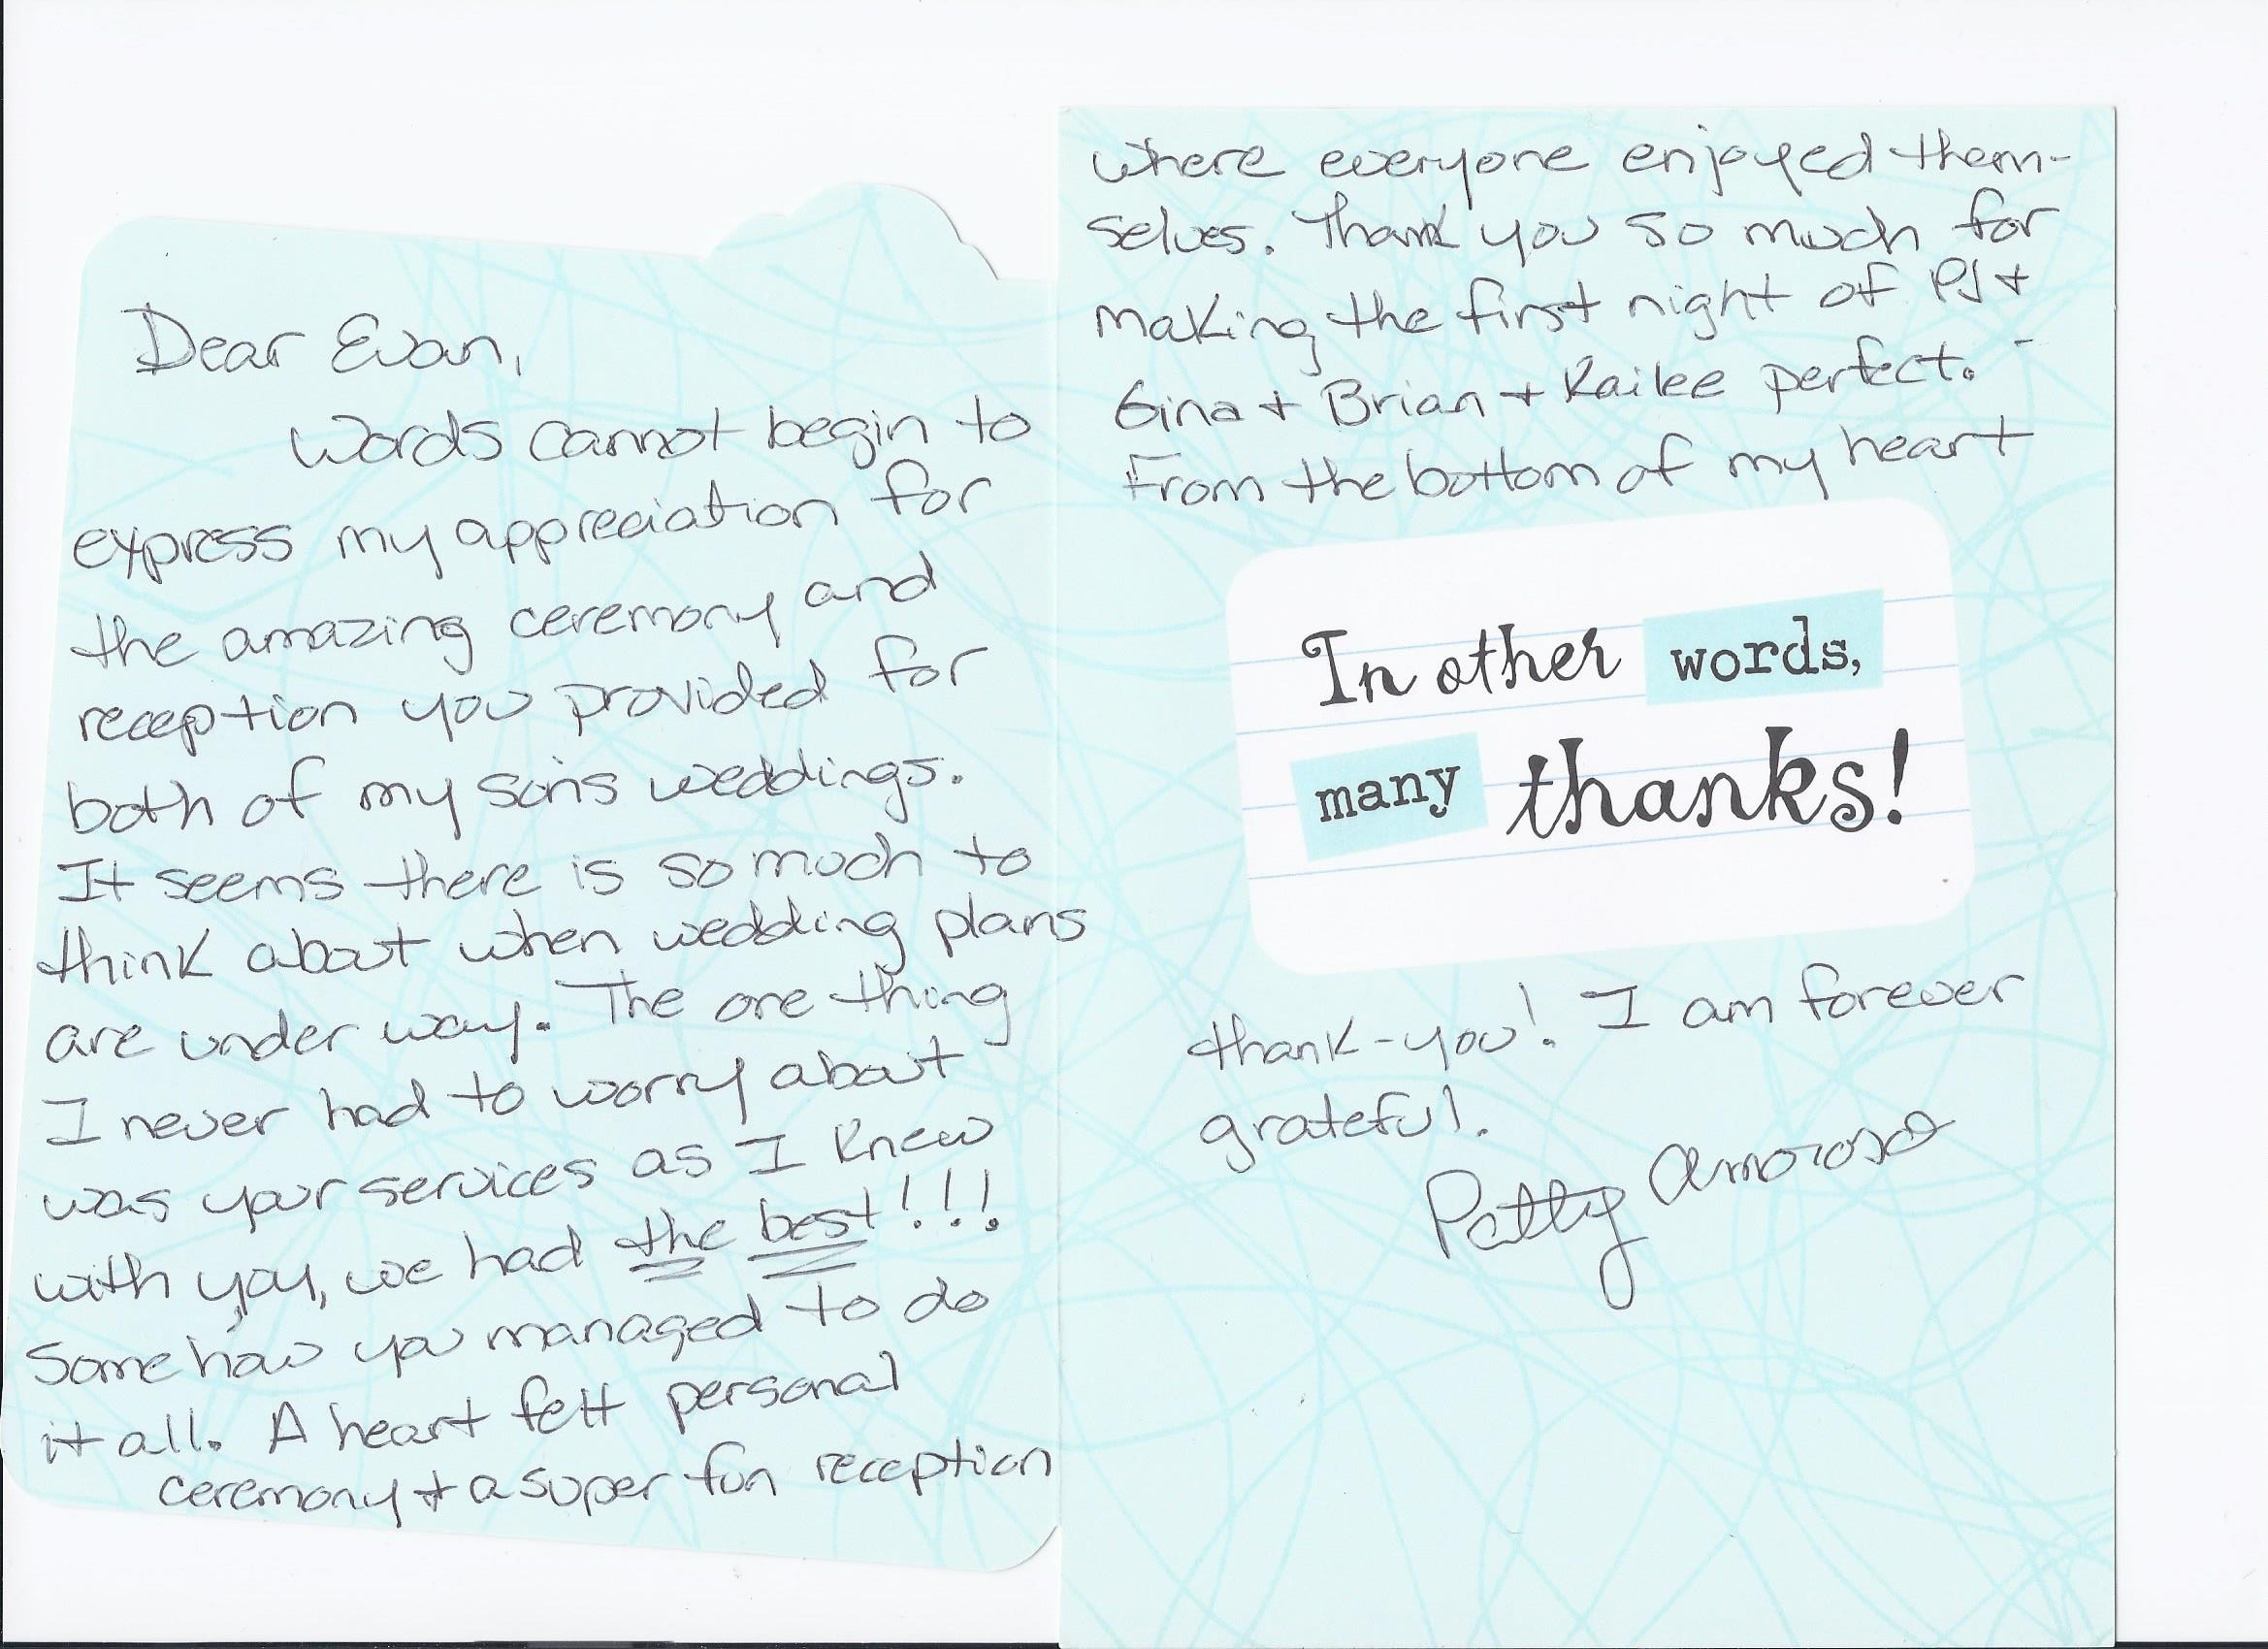 Dear Evan,
Words cannot begin to
express my appreciation for
the amazing ceremony and
reception you provided for
both of my son's weddings.
It seems there is so much to
think about when wedding plans
are under way. The one thing
I never had to worry about
was your services as I knew
with you, we had the best!!!
Some how you managed to do
it all. A heart felt personal
ceremony + a super fun reception
where everyone enjoyed them-
selves. Thank you so much for
making the first night of PJ +
Gina + Brian + Kailee perfect.
From the bottom of my heart
In other words,
many thanks!
thank-you! I am forever
grateful.
Patty Amoroso